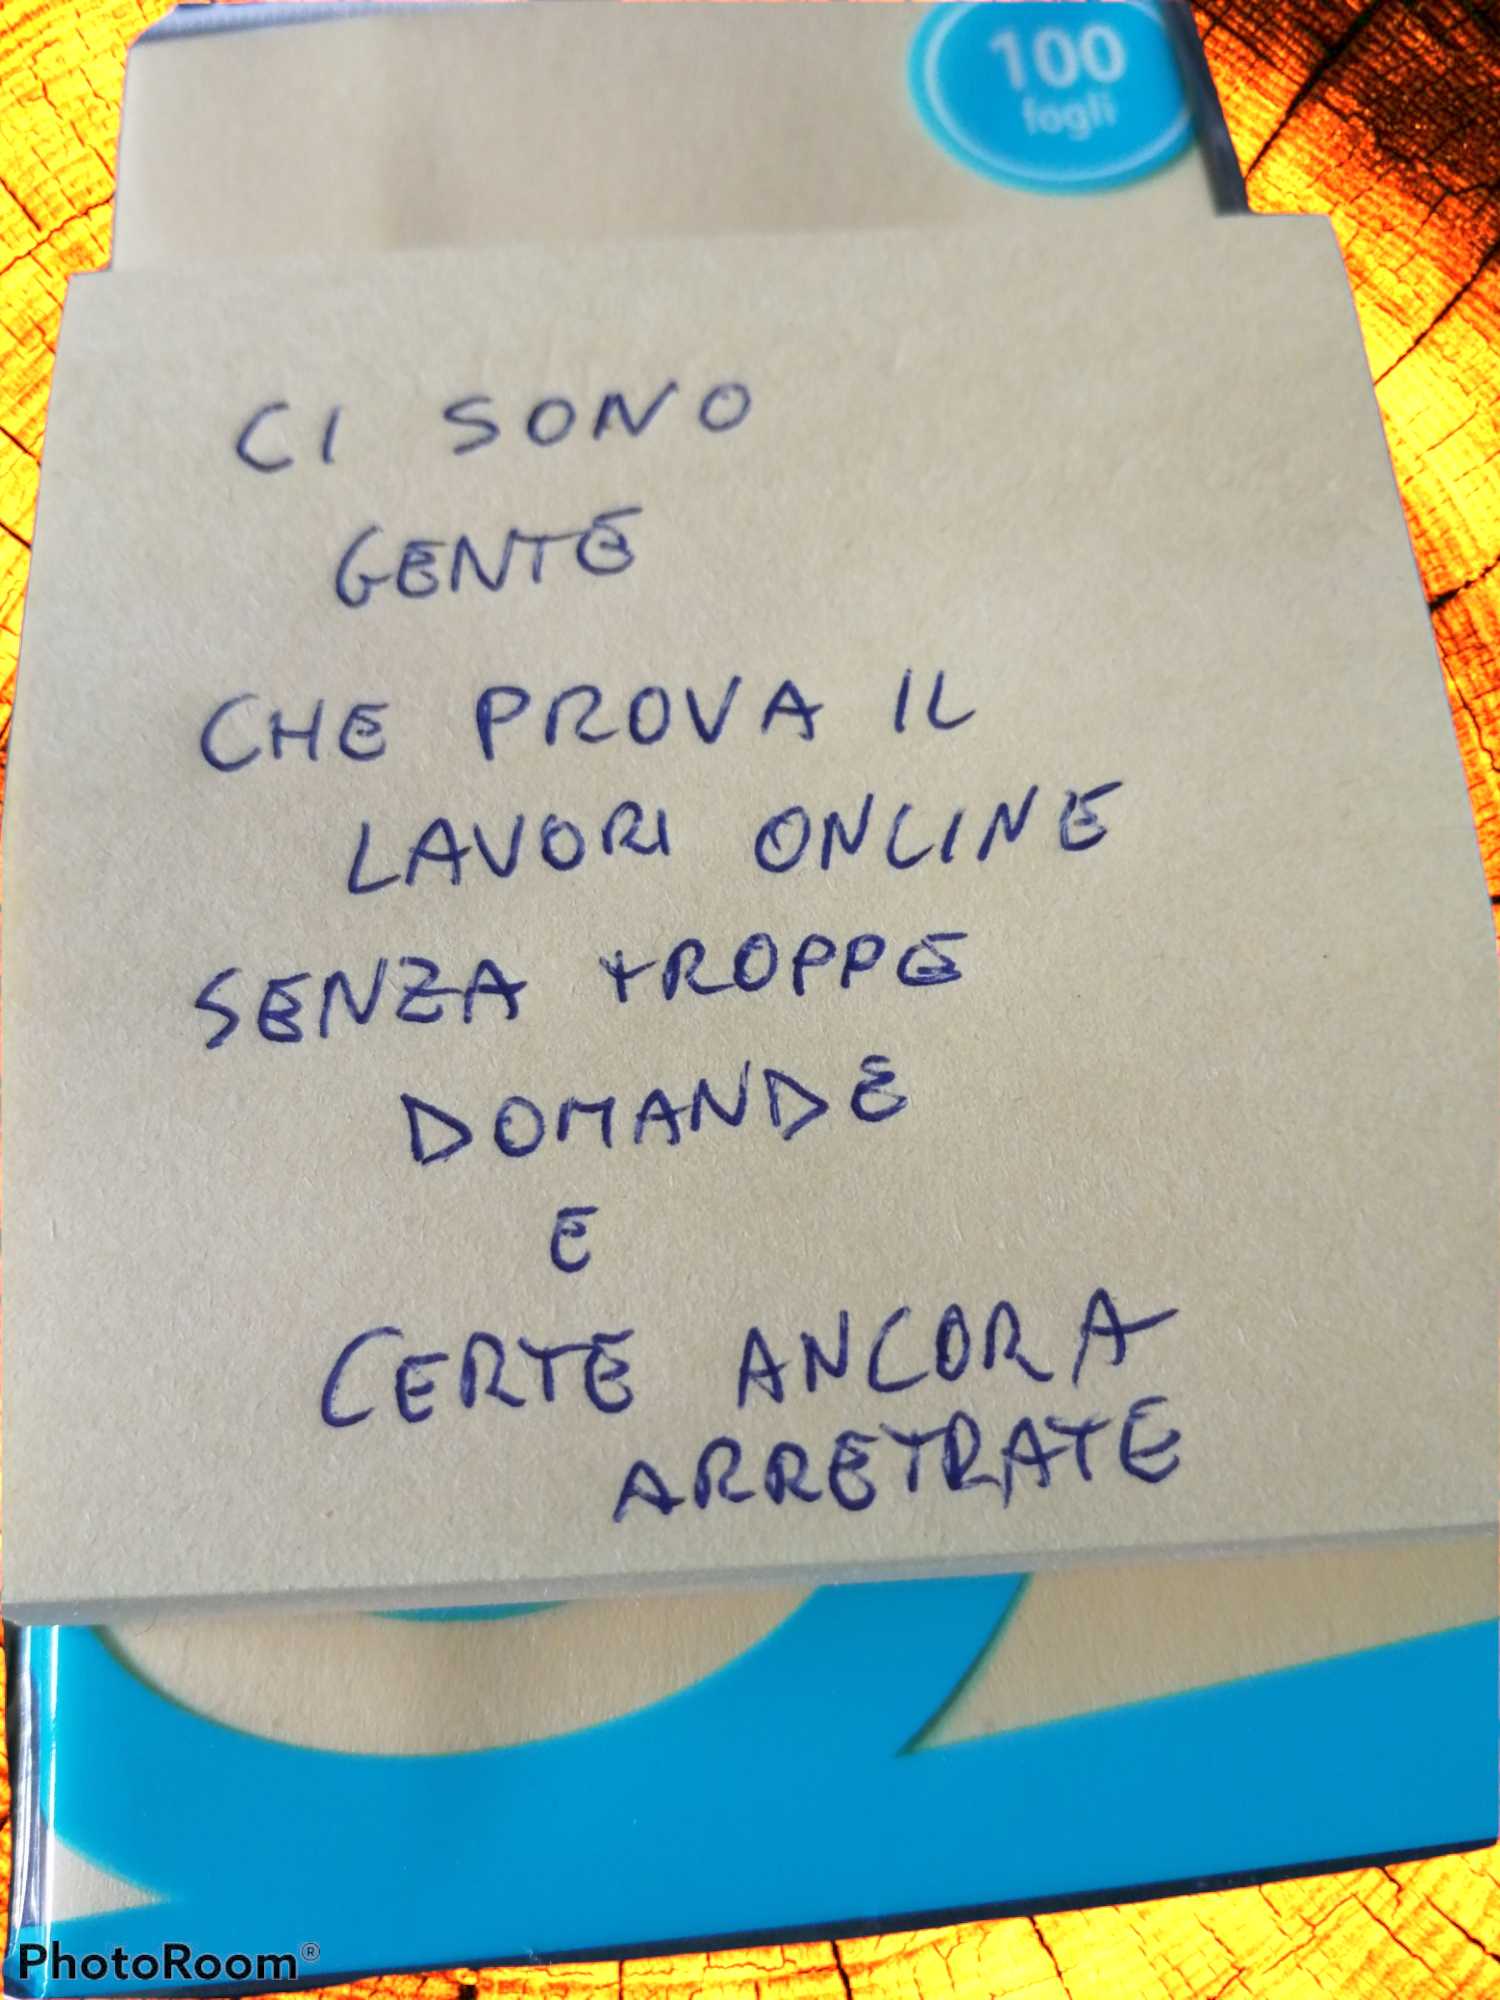 100
fogli
CI SONO
GENTE
CHE PROVA IL
LAVORI ONLINE
SENZA TROPPE
DOMANDE
E
CERTE ANCORA
ARRETRATE
PhotoRoom®